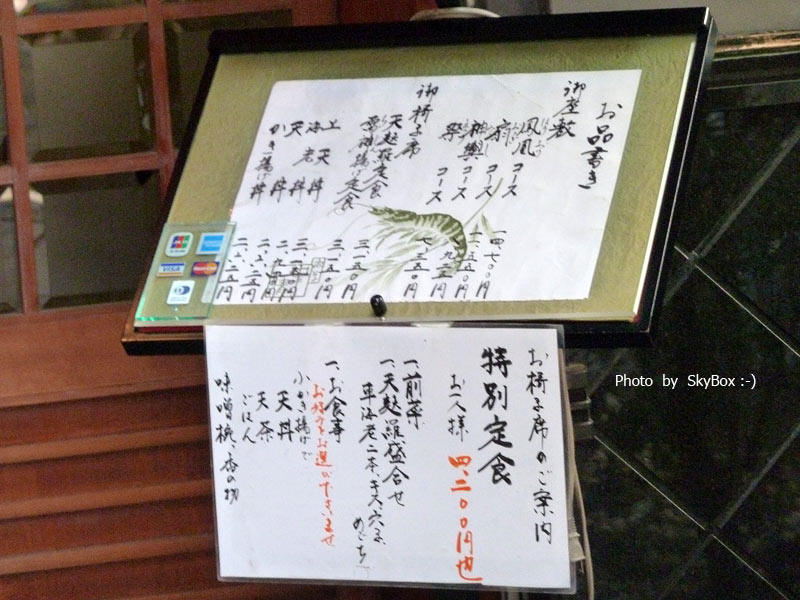 お品書き
御座敷
鳳凰 コース 一四、七〇〇円
扇 コース 一二、五五〇円
神輿 コース
祭 コース 七、三五〇円
御椅子席
天麩羅定食 三、一五〇円
雷神揚げ定食 三、一五〇円
上天丼 三、一五〇円
海老丼
天丼 二、六二五円
かき揚げ丼
VISA
MasterCard
JCB
お椅子席のご案内
特別定食
お一人様 四、二〇〇円也
一、前菜
一、天麩羅盛合せ
車海老二本、キス、穴子、
めごち
一、お食事
お好みをお選び下さいませ
小かき揚げで
天丼
天茶
ごはん
味噌椀、香の物
Photo by SkyBox :-)